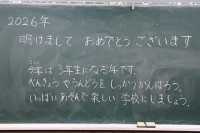 2026年
明けまして おめでとう ございます
今年は 3年生になる年です。
べんきょうやうんどうを しっかりがんばろう。
いっぱいあそんで 楽しい 学校にしましょう。